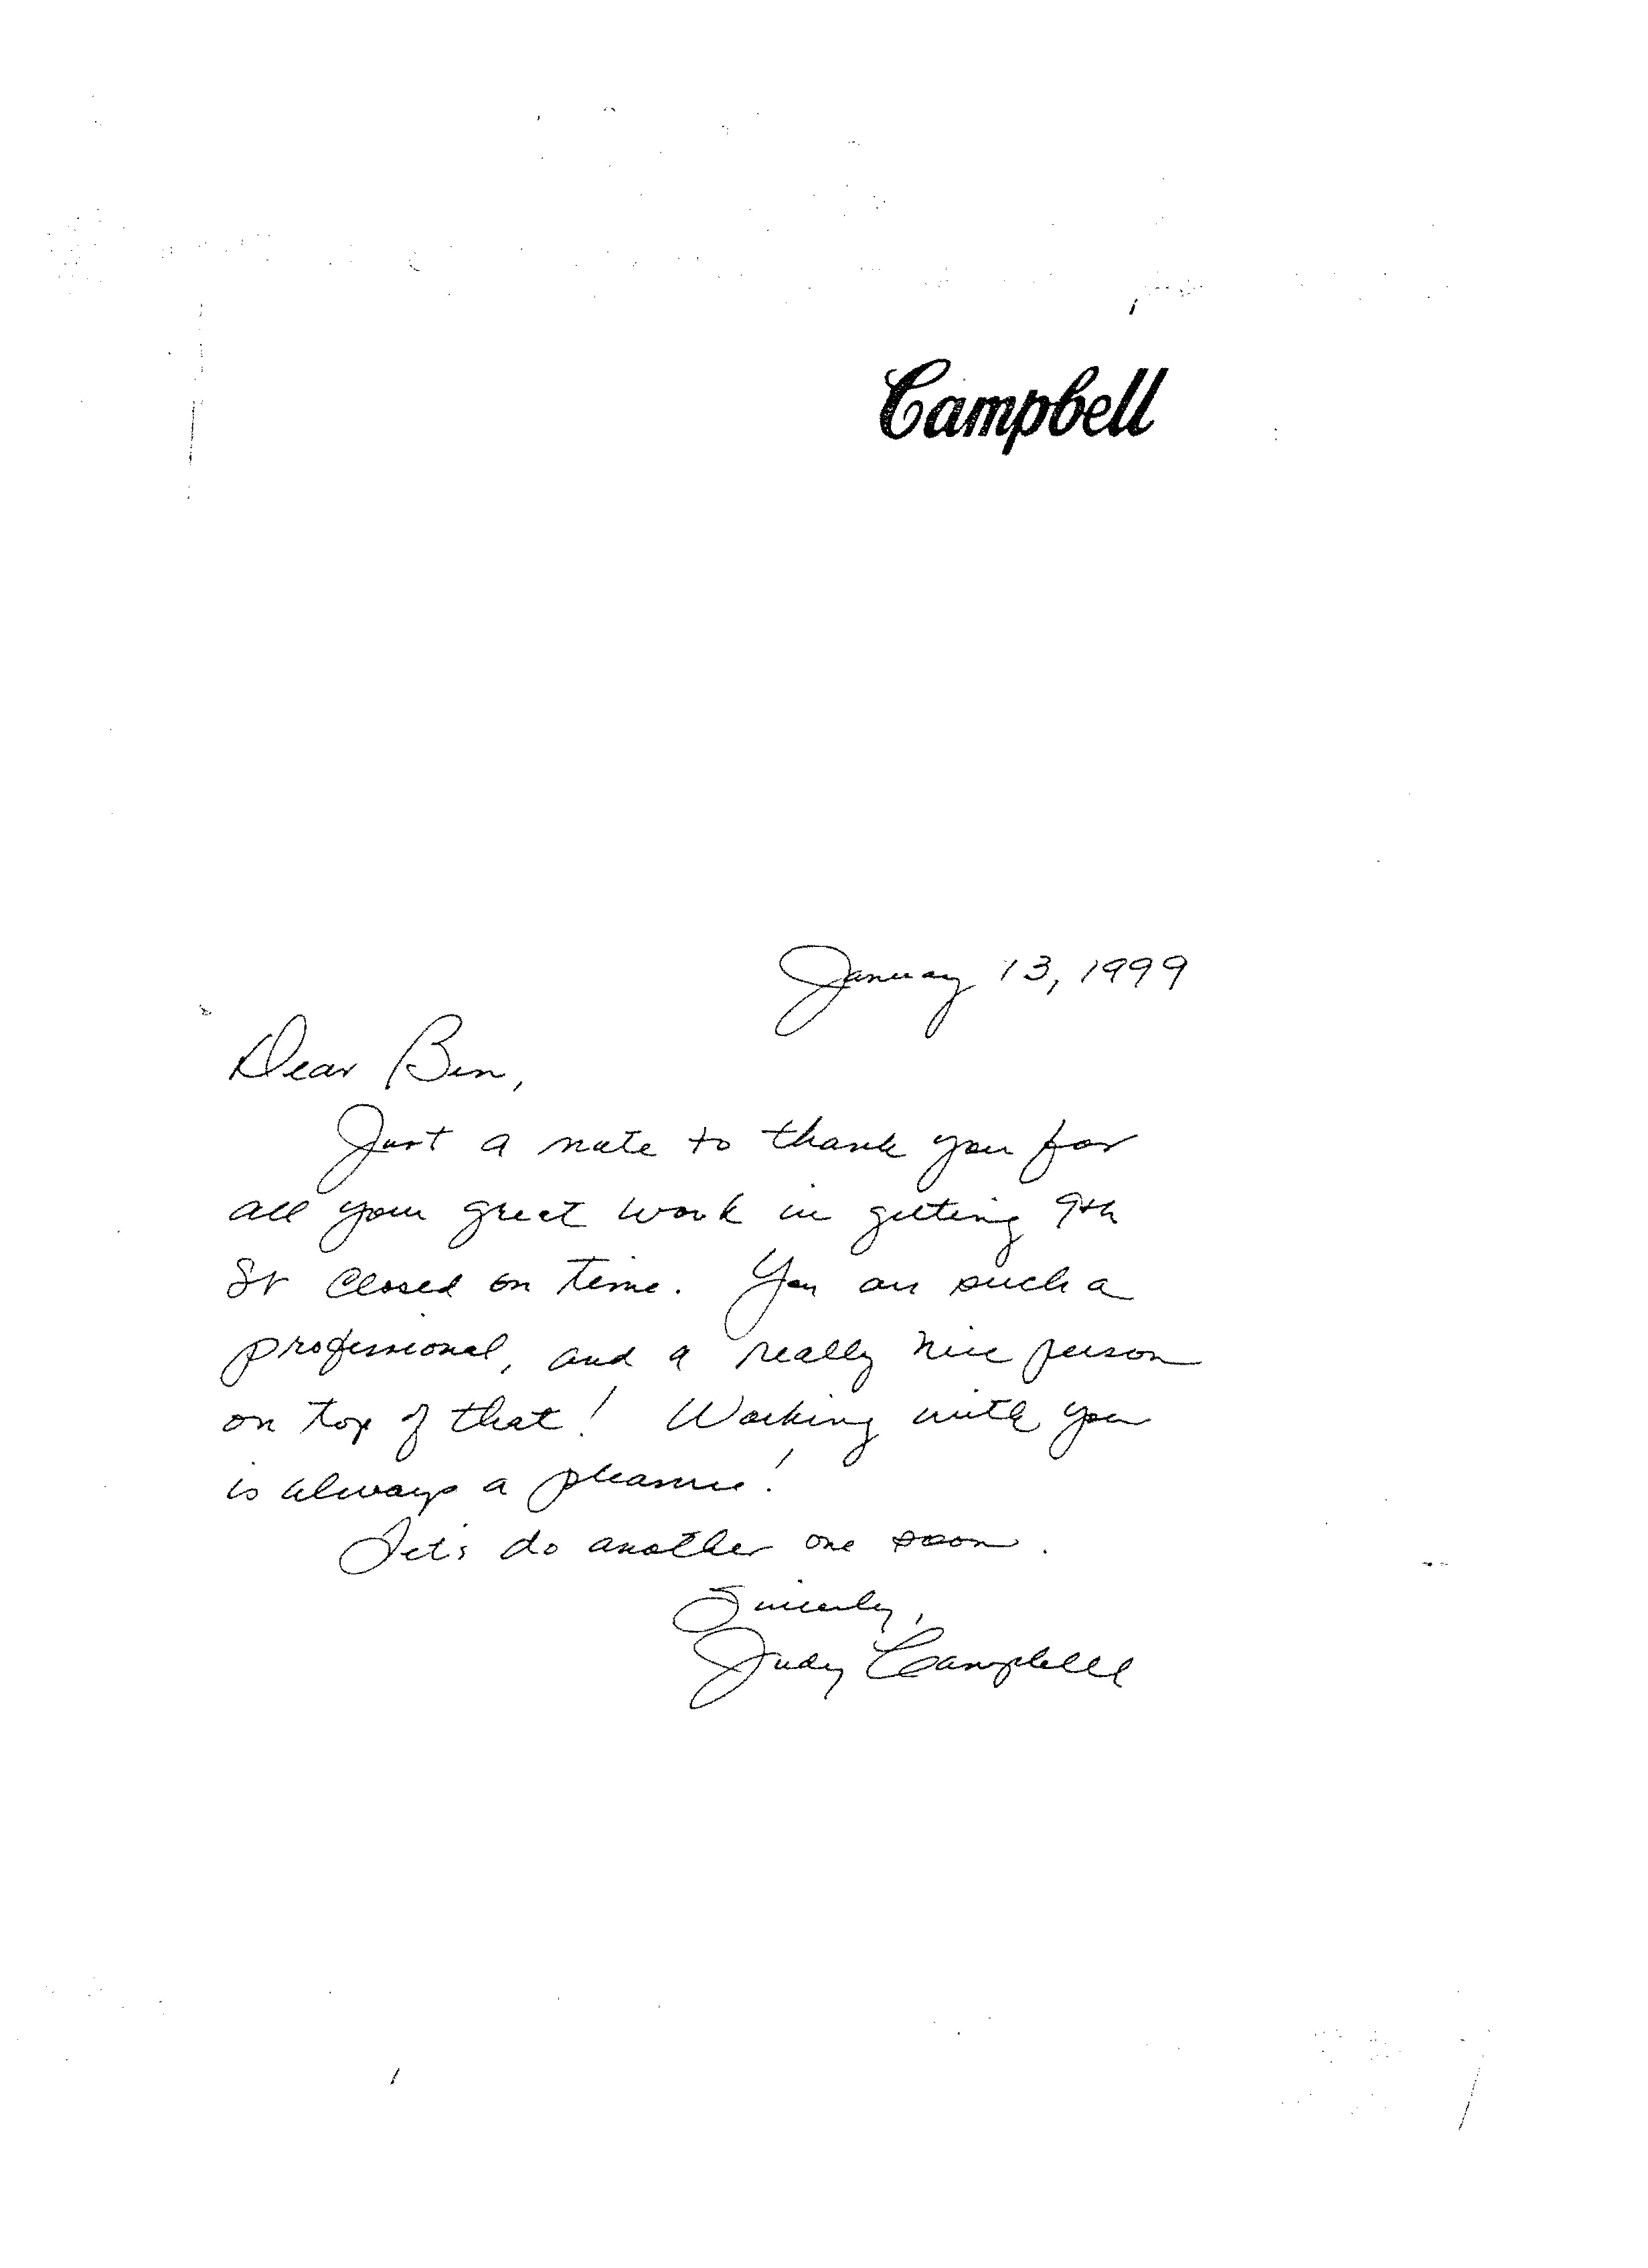 Campbell
January 13, 1999
Dear Ben,
Just a note to thank you for
all your great work in getting 9th
St closed on time. You are such a
professional, and a really nice person
on top of that! Working with you
is always a pleasure!
Let's do another one soon.
Sincerely,
Judy Campbell